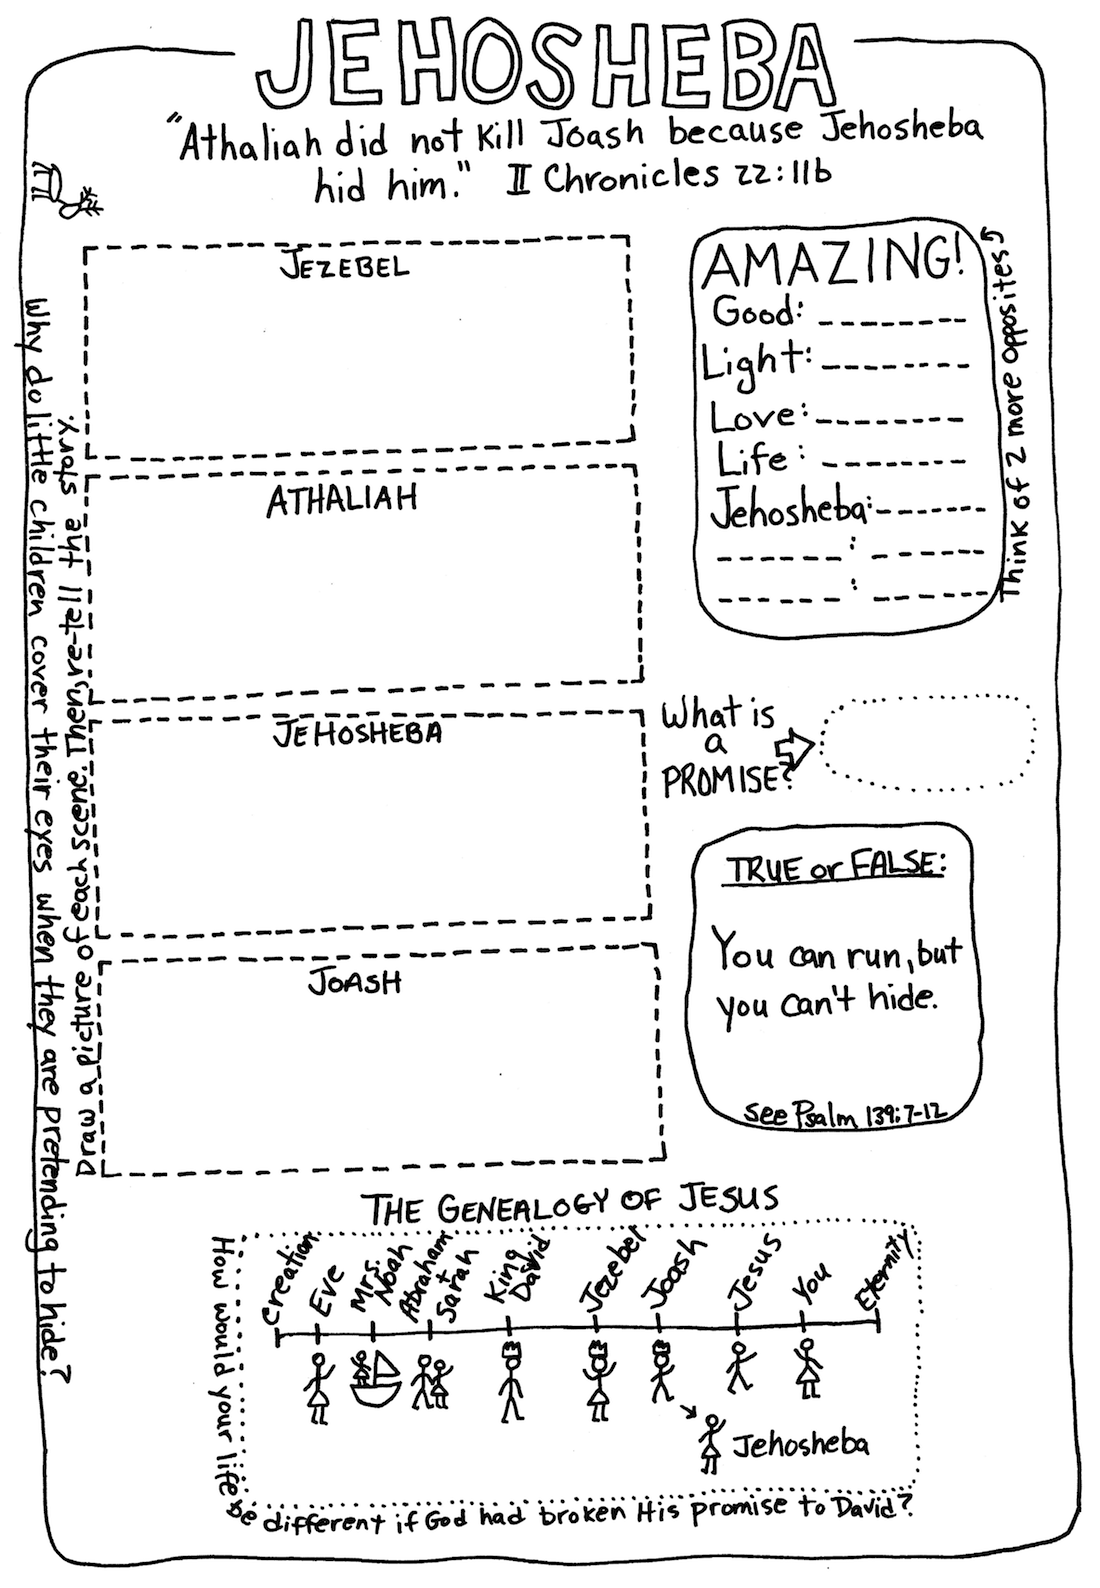 JEHOSHEBA
"Athaliah did not kill Joash because Jehosheba
hid him." II Chronicles 22:11b
Why do little children cover their eyes when they are pretending to hide?
Draw a picture of each scene. Then, re-tell the story.
JEZEBEL
ATHALIAH
JEHOSHEBA
JOASH
AMAZING!
Good:
Light:
Love:
Life:
Jehosheba:
:
:
Think of 2 more opposites
What is
a
PROMISE?
TRUE or FALSE:
You can run, but
you can't hide.
see Psalm 139:7-12
THE GENEALOGY OF JESUS
Creation
Eve
Mrs.
Noah
Abraham
+
Sarah
King
David
Jezebel
Joash
Jesus
You
Eternity
Jehosheba
How would your life
be different if God had broken His promise to David?